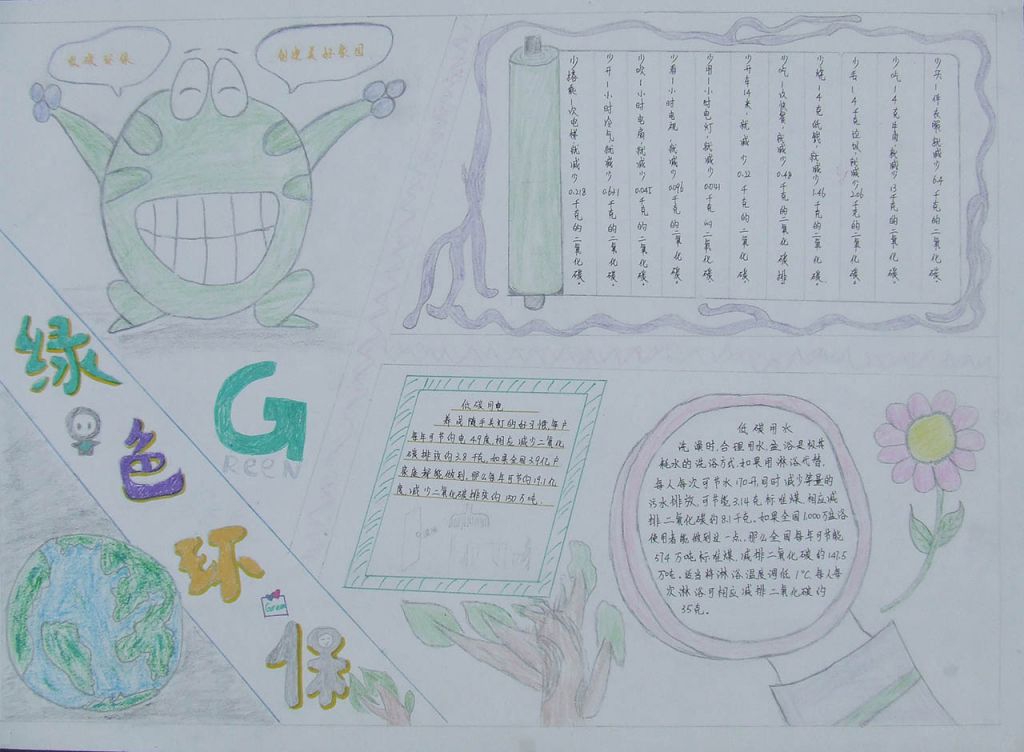 低碳环保
创建美好家园
少搭乘一次电梯,就减少0.218千克的二氧化碳。
少开一小时冷气,就减少0.621千克的二氧化碳。
少吹一小时电扇,就减少0.045千克的二氧化碳。
少看一小时电视,就减少0.096千克的二氧化碳。
少用一小时电灯,就减少0.041千克的二氧化碳。
少开车1千米,就减少0.22千克的二氧化碳。
少吃一次快餐,就减少0.48千克的二氧化碳排
少烧一千克纸钱,就减少1.46千克的二氧化碳。
少丢一千克垃圾,就减少2.06千克的二氧化碳。
少吃一千克牛肉,就减少13千克的二氧化碳。
少买一件衣服,就减少6.4千克的二氧化碳。
绿色环保
G
REEN
Green
低碳用电
养成随手关灯的好习惯,每户
每年可节约电4.9度,相应减少二氧化
碳排放约3.8千克。如果全国3.9亿户
家庭都能做到,那么每年可节约19.1亿
度,减少二氧化碳排放约150万吨。
低碳用水
洗澡时,合理用水,盆浴是极其
耗水的洗浴方式,如果用淋浴代替,
每人每次可节水170升,同时减少等量的
污水排放,可节能3.14千克标准煤,相应减
排二氧化碳约8.1千克。如果全国1,000万盆浴
使用者能做到这一点,那么全国每年可节能
574万吨标准煤,减排二氧化碳约1475
万吨。适当将淋浴温度调低1℃,每人每
次淋浴可相应减排二氧化碳约
35克。